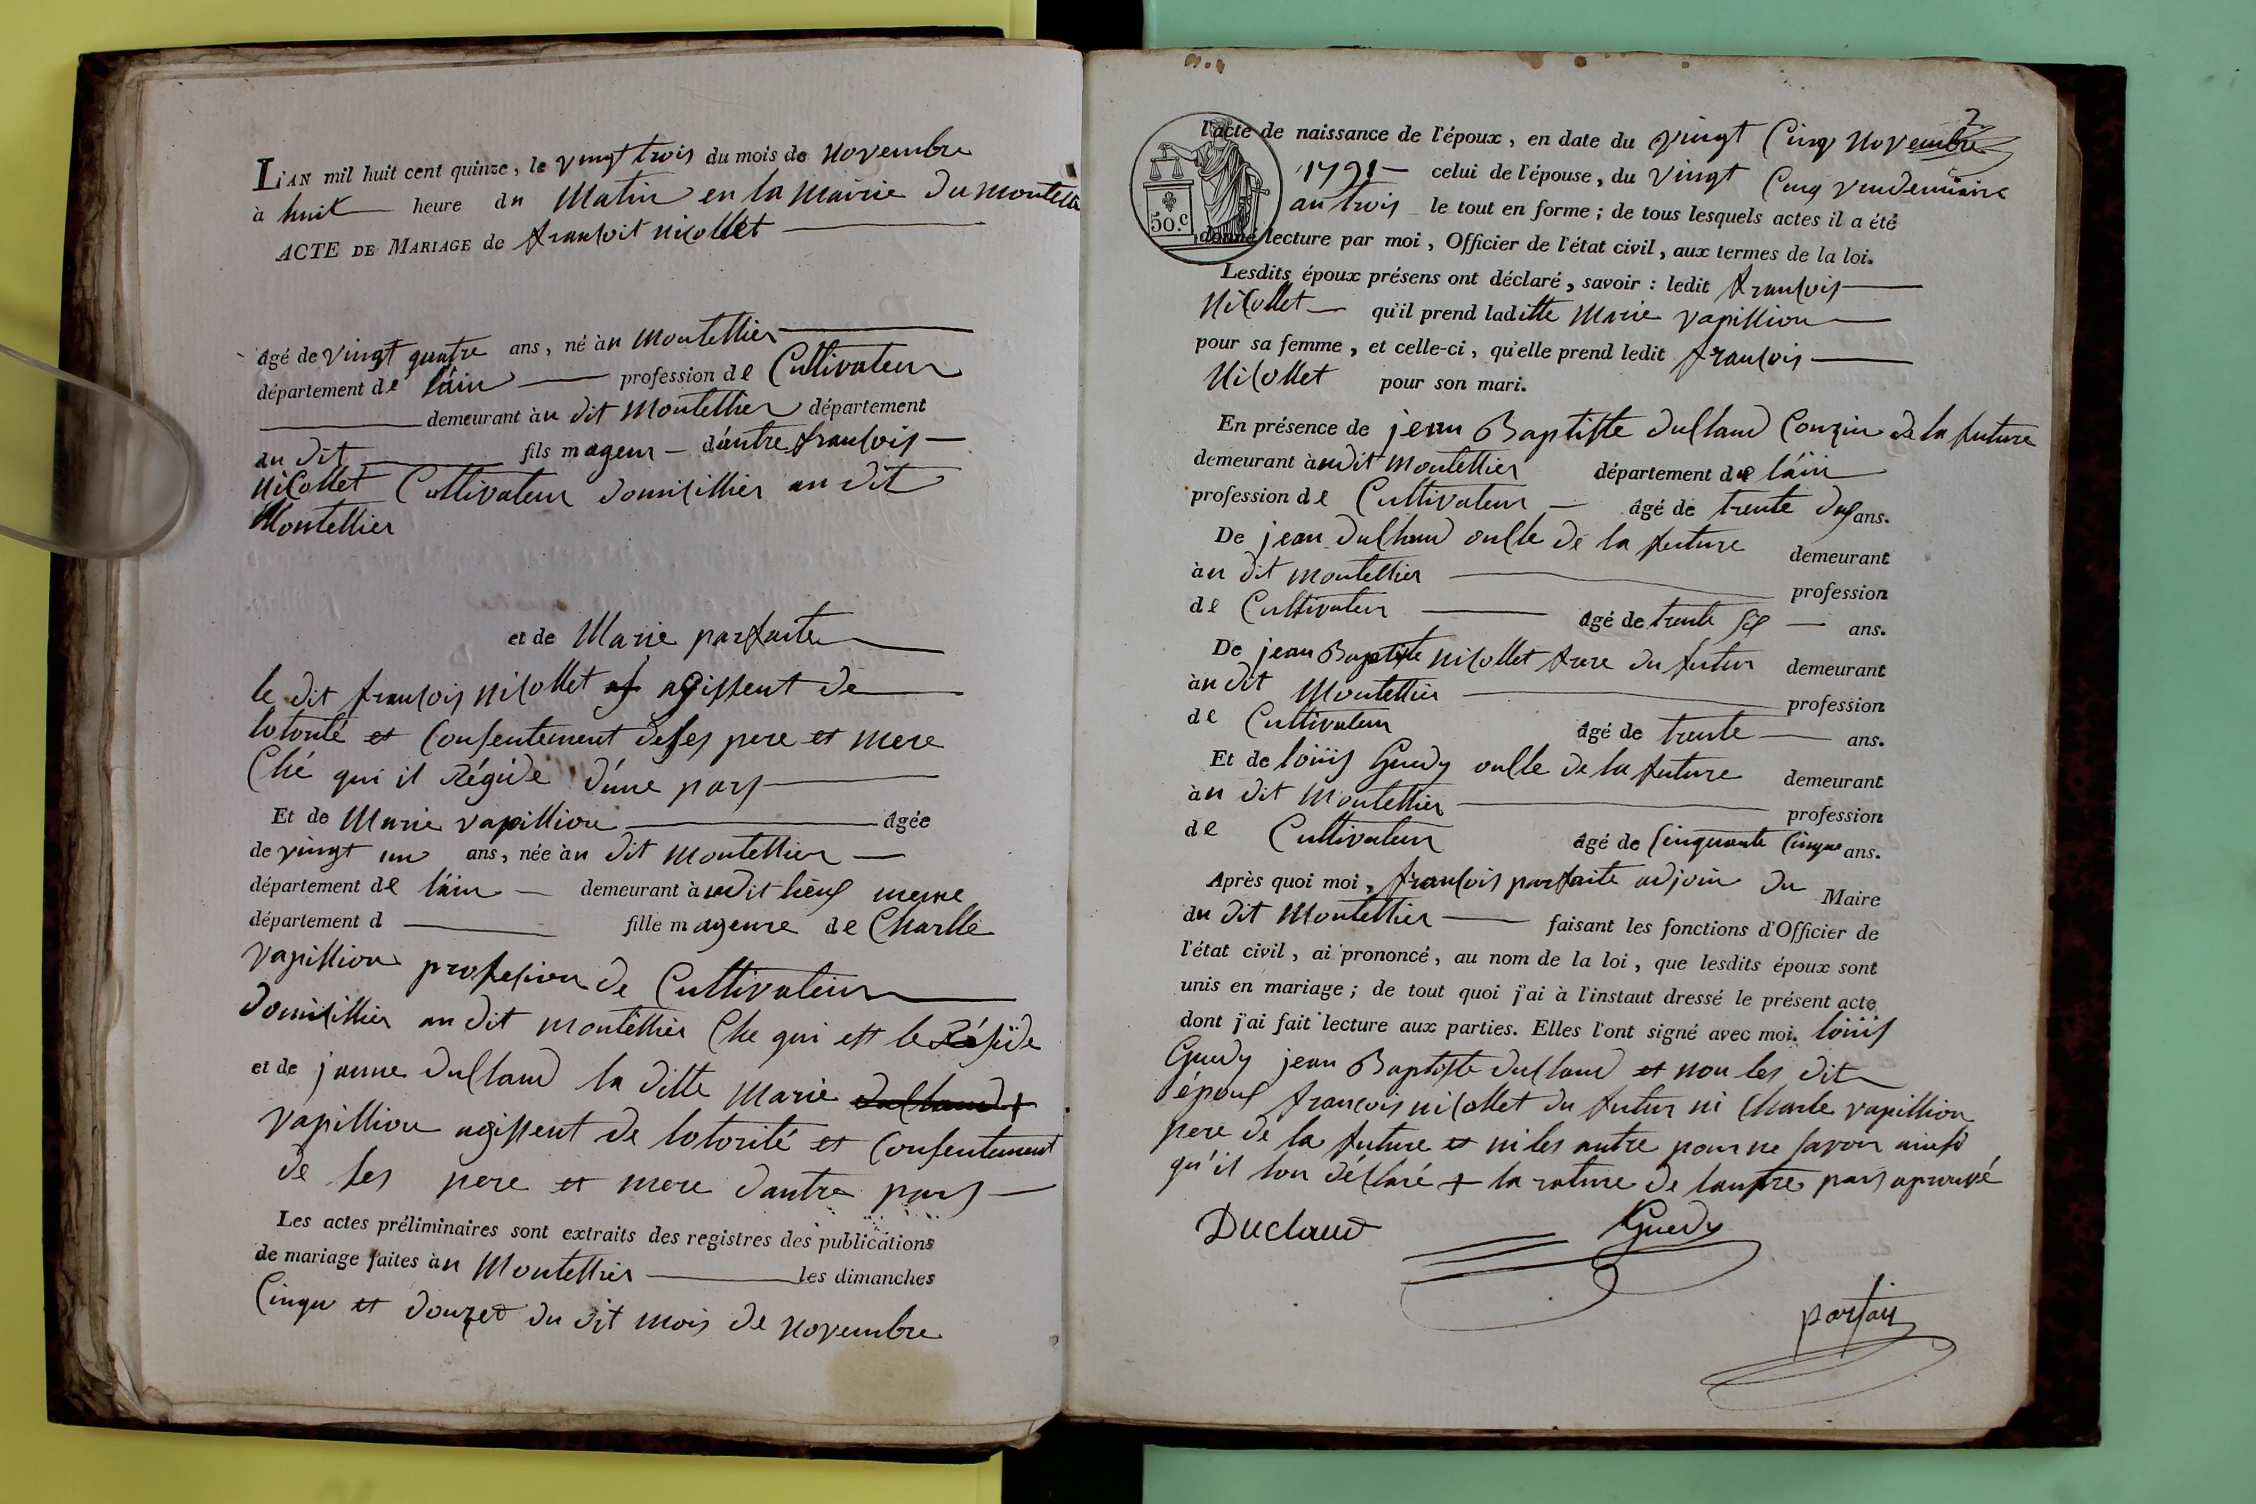 L'AN mil huit cent quinze, le vingt trois du mois de novembre
à huit heure du Matin en la Mairie du montellier
ACTE DE MARIAGE de francoit nicollet
âgé de vingt quatre ans, né àu Montellier
département de láin profession de Cultivateur
demeurant àu dit Montellier département
au dit fils mageur d'autre francois
nicollet Cultivateur domicillier au dit
Montellier
et de Marie parfaite
le dit francois nicollet agissent de
lotorité et Consentement de ses pere et mere
Ché qui il Régide d'une pars
Et de Marie vapillion âgée
de vingt un ans, née àu dit Montellier
département de láin demeurant àudit lieux meme
département d fille mageure de Charlle
vapillion profesion de Cultivateur
domicillier au dit montellier Che qui ett le Réside
et de janne duclaud la ditte Marie duclaud +
vapillion agissent de lotorité et Consentement
de ses pere et mere dautre pars
Les actes préliminaires sont extraits des registres des publications
de mariage faites àu Montellier les dimanches
Cinqu et douzet du dit mois de novembre
2
l'acte de naissance de l'époux, en date du vingt Cinq novembre
1791 celui de l'épouse, du vingt Cinq vendemiaire
an trois le tout en forme; de tous lesquels actes il a été
50.c donné lecture par moi, Officier de l'état civil, aux termes de la loi.
Lesdits époux présens ont déclaré, savoir : ledit francois
Nicollet qu'il prend laditte Marie vapillion
pour sa femme, et celle-ci, qu'elle prend ledit francois
Nicollet pour son mari.
En présence de jean Baptiste duclaud Couzin de la future
demeurant àudit Montellier département de láin
profession de Cultivateur âgé de trente ans.
De jean duclaud oncle de la future demeurant
àu dit montellier profession
de Cultivateur âgé de trente ans.
De jean Baptiste nicollet frere du futur demeurant
àu dit Montellier profession
de Cultivateur âgé de trente ans.
Et de loüis Guedy oncle de la future demeurant
àu dit Montellier profession
de Cultivateur âgé de Cinquante Cinque ans.
Après quoi moi, francois parfaite adjoin du Maire
du dit Montellier faisant les fonctions d'Officier de
l'état civil, ai prononcé, au nom de la loi, que lesdits époux sont
unis en mariage; de tout quoi j'ai à l'instaut dressé le présent acte
dont j'ai fait lecture aux parties. Elles l'ont signé avec moi. loüis
Guedy jean Baptiste duclaud et non les dit
époux francois nicollet du futur ni Charle vapillion
pere de la future et ni les autre pour ne savoir ainsi
qu'il lon déclaré + la rature de lautre pars aprouvé
Duclaud Guedy
parfait